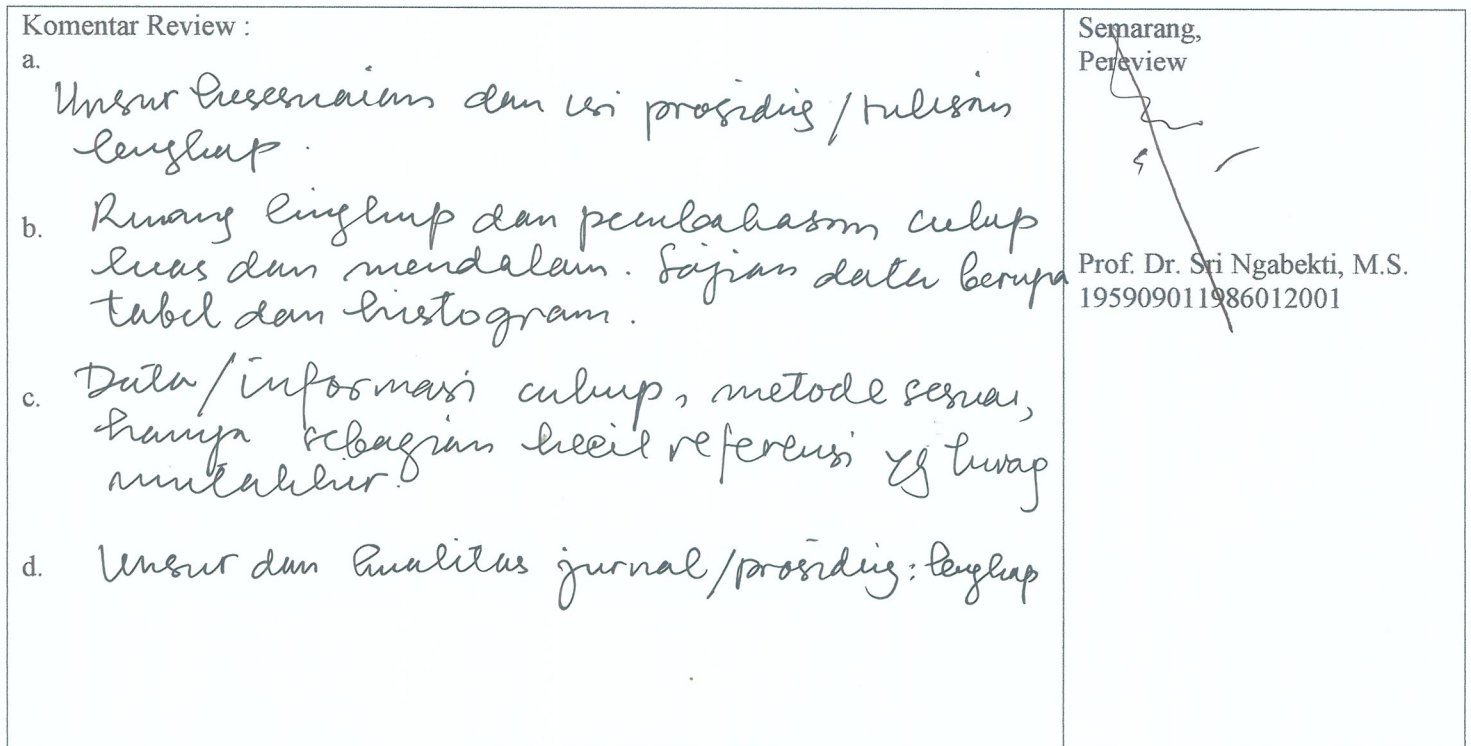 Komentar Review :
a.
Unsur kesesuaian dan isi prosiding / tulisan
lengkap.
b. Ruang lingkup dan pembahasan cukup
luas dan mendalam. Sajian data berupa
tabel dan histogram.
c. Data/informasi cukup, metode sesuai,
hanya sebagian kecil referensi yg kurang
mutakhir.
d. Unsur dan kualitas jurnal/prosiding: lengkap
Semarang,
Pereview
Prof. Dr. Sri Ngabekti, M.S.
195909011986012001